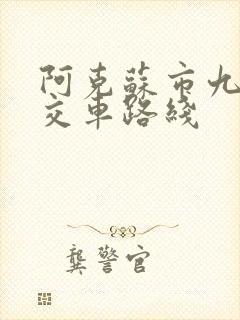 阿克蘇市九
交車路綫
龔警官